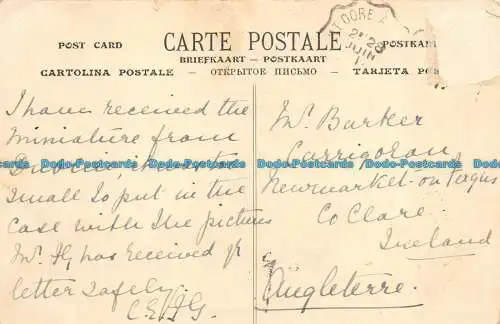 CARTE POSTALE
POST CARD
POSTKAR
BRIEFKAART — POSTKAART
CARTOLINA POSTALE — ОТКРЫТОЕ ПИСЬМО — TARJETA POS
DORE
28
JUIN
I have received the
miniature from
small to put in the
case with the pictures
Mr. G, has received yr
letter safely.
Mr. Barker
Carrigoran
Newmarket-on-Fergus
Co Clare
Ireland
Angleterre.
Dodo-Postcards Dodo-Postcards Dodo-Postcards Dodo-Postcards Dodo-Postcards